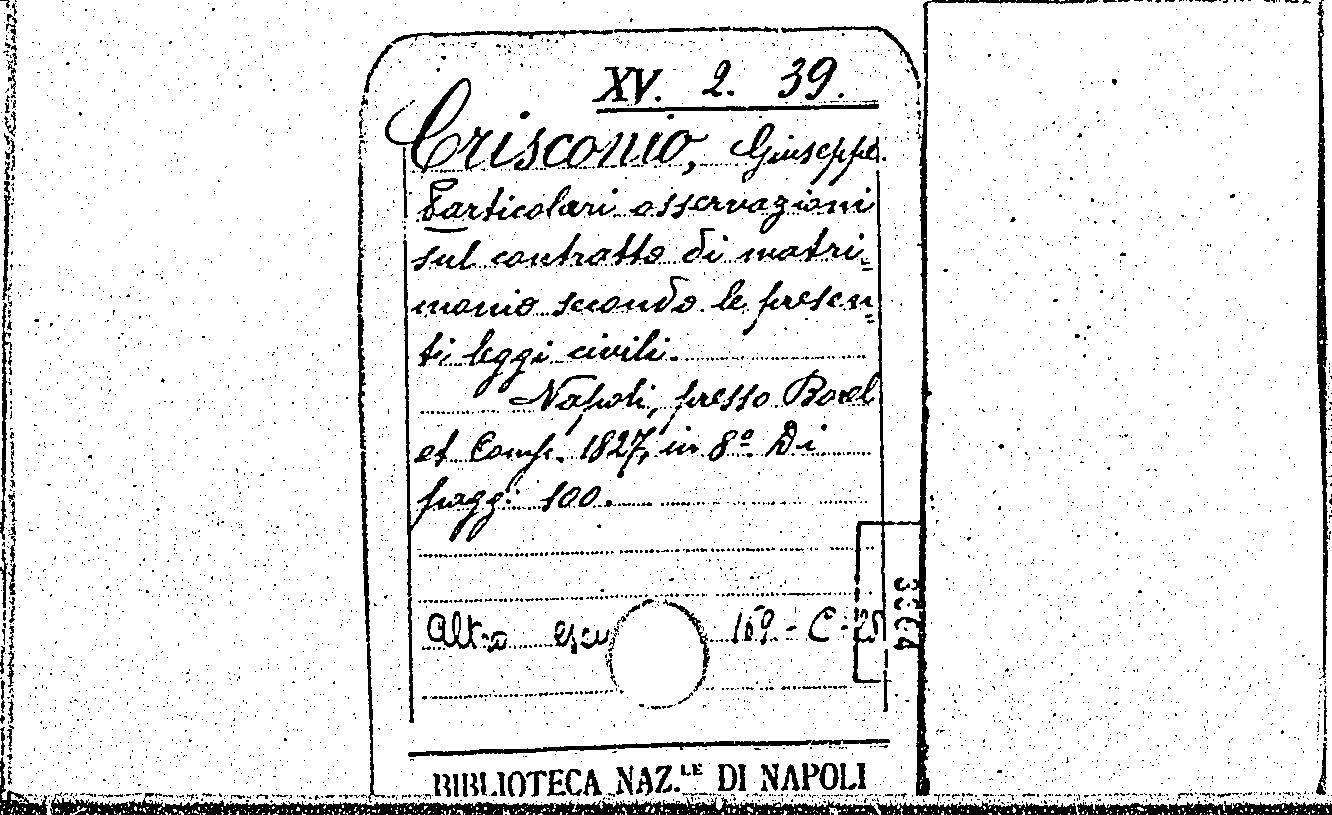 XV. 2. 39.
Crisconio, Giuseppe.
Particolari osservazioni
sul contratto di matri=
monio secondo le presen=
ti leggi civili.
Napoli, presso Borel
et Comp. 1827, in 8º Di
pagg: 100.
Altro 169 - C - 25
BIBLIOTECA NAZ.LE DI NAPOLI